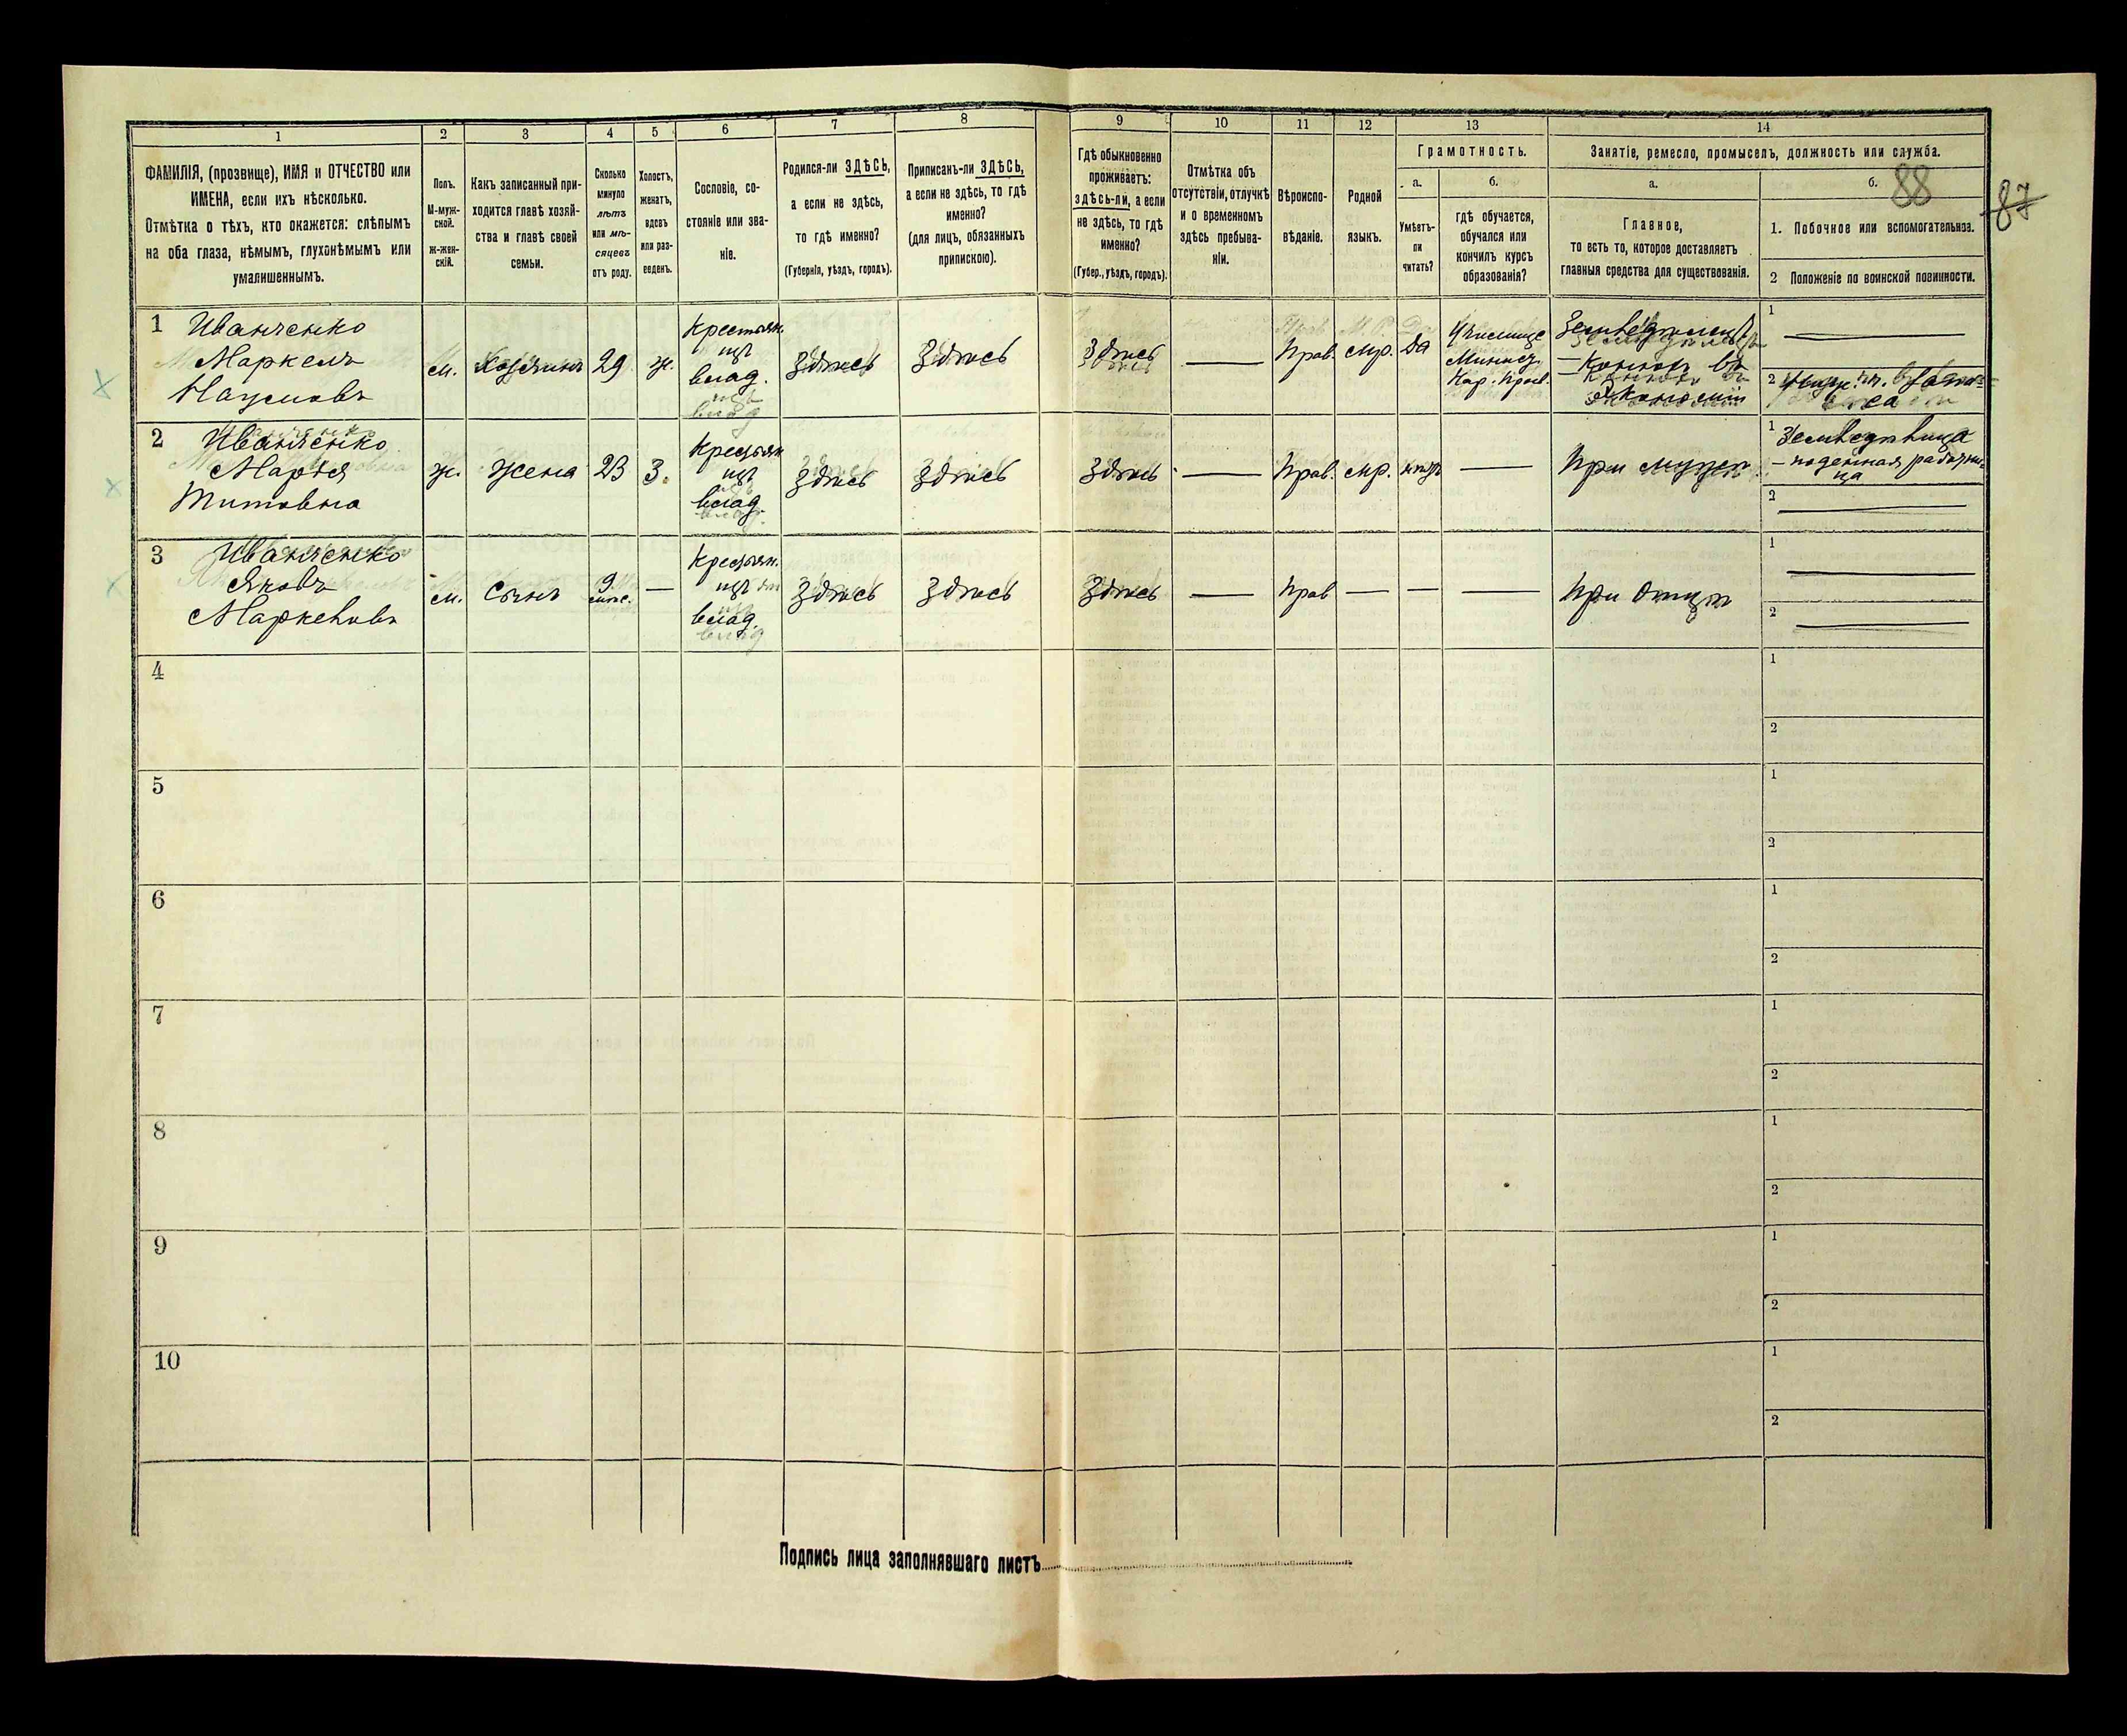 1 2 3 4 5 6 7 8 9 10 11 12 13 14
ФАМИЛІЯ, (прозвище), ИМЯ и ОТЧЕСТВО или
ИМЕНА, если ихъ нѣсколько.
Отмѣтка о тѣхъ, кто окажется: слѣпымъ
на оба глаза, нѣмымъ, глухонѣмымъ или
умалишеннымъ.
Полъ.
М-муж-
ской.
ж-жен-
скій.
Какъ записанный при-
ходится главѣ хозяй-
ства и главѣ своей
семьи.
Сколько
минуло
лѣтъ
или мѣ-
сяцевъ
отъ роду.
Холостъ,
женатъ,
вдовъ
или раз-
веденъ.
Сословіе, со-
стояніе или зва-
ніе.
Родился-ли ЗДѢСЬ,
а если не здѣсь,
то гдѣ именно?
(Губернія, уѣздъ, городъ).
Приписанъ-ли ЗДѢСЬ,
а если не здѣсь, то гдѣ
именно?
(для лицъ, обязанныхъ
припискою).
Гдѣ обыкновенно
проживаетъ:
здѣсь-ли, а если
не здѣсь, то гдѣ
именно?
(Губер., уѣздъ, городъ).
Отмѣтка объ
отсутствіи, отлучкѣ
и о временномъ
здѣсь пребыва-
ніи.
Вѣроиспо-
вѣданіе.
Родной
языкъ.
Грамотность.
а.
Умѣетъ-
ли
читать?
б.
гдѣ обучается,
обучался или
кончилъ курсъ
образованія?
Занятіе, ремесло, промыселъ, должность или служба.
а.
Главное,
то есть то, которое доставляетъ
главныя средства для существованія.
б.
88
87
1. Побочное или вспомогательное.
2 Положеніе по воинской повинности.
1 Иванченко
Маркелъ
Наумовъ
м.
Хозяинъ
29
ж.
Крестьян.
изъ
влад.
Здѣсь
Здѣсь
Здѣсь
—
Прав.
мр.
Да
Училище
Минист.
Нар. Просв.
Конюхъ въ
экономіи
1 —
2
2 Иванченко
Марія
Титовна
ж.
Жена
23
З.
Крестьян
изъ
влад.
Здѣсь
Здѣсь
Здѣсь
—
Прав.
мр.
нѣтъ
—
При мужѣ
1
— поденная работни-
ца
2 —
3 Иванченко
Яковъ
Маркеловъ
м.
Сынъ
9
мѣс.
—
Крестьян.
изъ
влад.
Здѣсь
Здѣсь
Здѣсь
—
Прав
—
—
—
При Отцѣ
1 —
2 —
4
1
2
5
1
2
6
1
2
7
1
2
8
1
2
9
1
2
10
1
2
Подпись лица заполнявшаго листъ